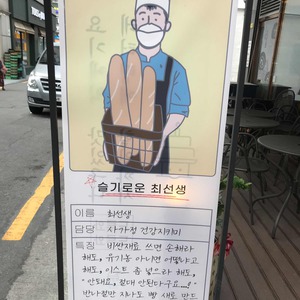 슬기로운 최선생
이름 최선생
담당 사가정 건강지키미
특징 비싼재료 쓰면 손해라
해도, 유기농 아니면 어떻냐고
해도, 이스트 좀 넣으라 해도,
"안돼요, 절대 안된다구요...!"
반나절만 지나도 빵 새로